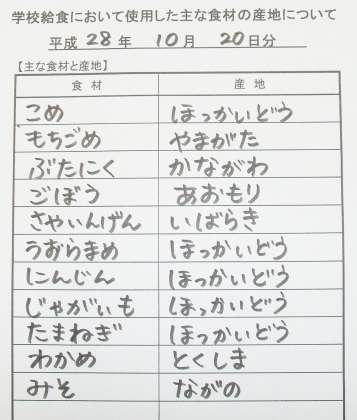 学校給食において使用した主な食材の産地について
平成 28 年 10 月 20 日分
【主な食材と産地】
食材 産地
こめ ほっかいどう
もちごめ やまがた
ぶたにく かながわ
ごぼう あおもり
さやいんげん いばらき
うおらまめ ほっかいどう
にんじん ほっかいどう
じゃがいも ほっかいどう
たまねぎ ほっかいどう
わかめ とくしま
みそ ながの